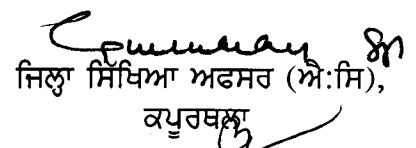 ਜਿਲ੍ਹਾ ਸਿੱਖਿਆ ਅਫਸਰ (ਐ:ਸਿ),
ਕਪੂਰਥਲਾ